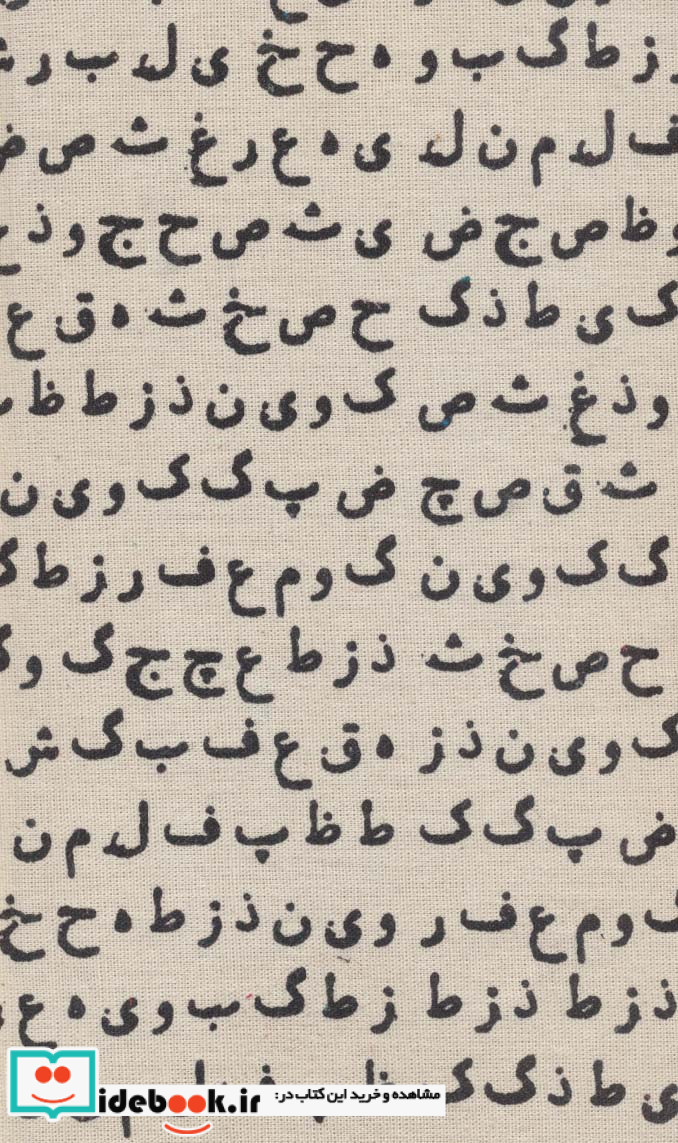 ر ز ط گ ب و ه ح خ ی ل ب ر
ف ل م ن ل ی ه ع ر غ ث ص ض
و ظ ص ج ض ی ث ص ح ج و ذ ع
ک ی ط ذ گ ح ص خ ث ه ق ع
و ذ غ ث ص ک و ی ن ذ ز ط ظ
ث ق ص چ ض پ گ ک و ی ن
گ ک و ی ن گ و م ع ف ر ز ط گ
ح ص خ ث ذ ز ط ع چ ج گ و گ
ک و ی ن ذ ز ه ق ع ف ب گ ش
ض پ گ ک ط ظ پ ف ل م ن
گ و م ع ف ر و ی ن ذ ز ط ه ح خ
ذ ز ط ذ ز ط ز ط گ ب و ی ه ع
ی ط ذ گ ک
مشاهده و خرید این کتاب در: idebook.ir